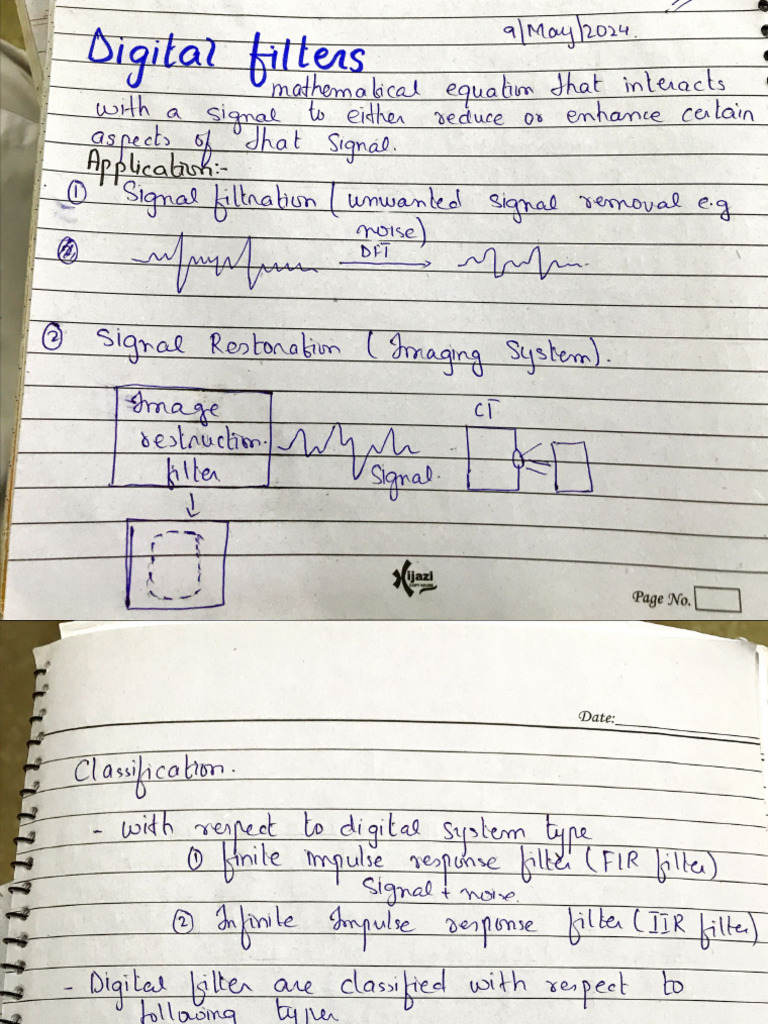 9/May/2024.
Digital filters
mathematical equation that interacts
with a signal to either reduce or enhance certain
aspects of that Signal.
Application:-
① Signal filtration (unwanted signal removal e.g
noise)
DFT
② Signal Restoration (Imaging System).
Image
restruction
filter
Signal.
CT
Hijazi
Page No.
Date:
Classification.
- with respect to digital system type
① finite impulse response filter (FIR filter)
Signal + noise.
② Infinite Impulse response filter (IIR filter)
- Digital filter are classified with respect to
following types